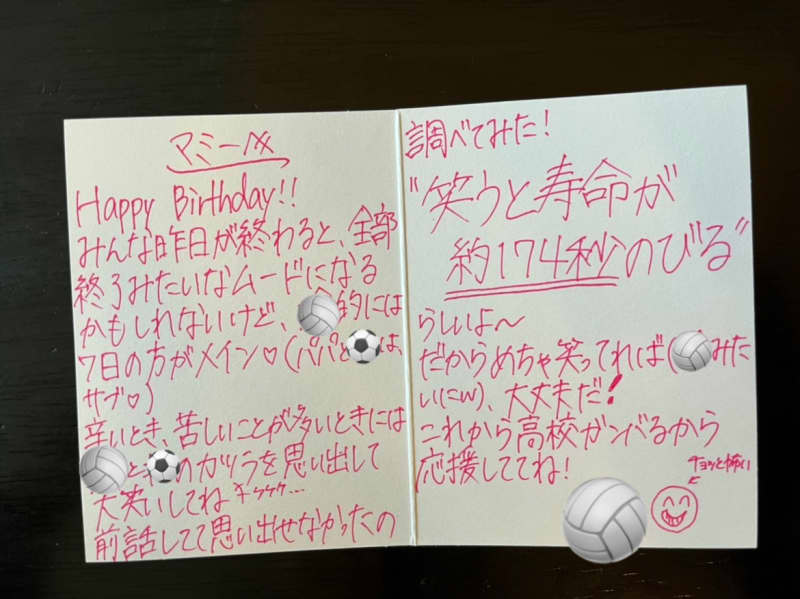 マミーへ
Happy Birthday!!
みんな昨日が終わると、全部
終了みたいなムードになる
かもしれないけど、的には
7日の方がメイン♡(パパとは、
サブ♡)
辛いとき、苦しいことが多いときには
とのカツラを思い出して
大笑いしてね
前話してて思い出せなかったの
調べてみた!
"笑うと寿命が
約174秒のびる"
らしいよ〜
だからめちゃ笑ってれば(みた
いにw)、大丈夫だ!
これから高校ガンバるから
応援しててね!
チョッと怖い